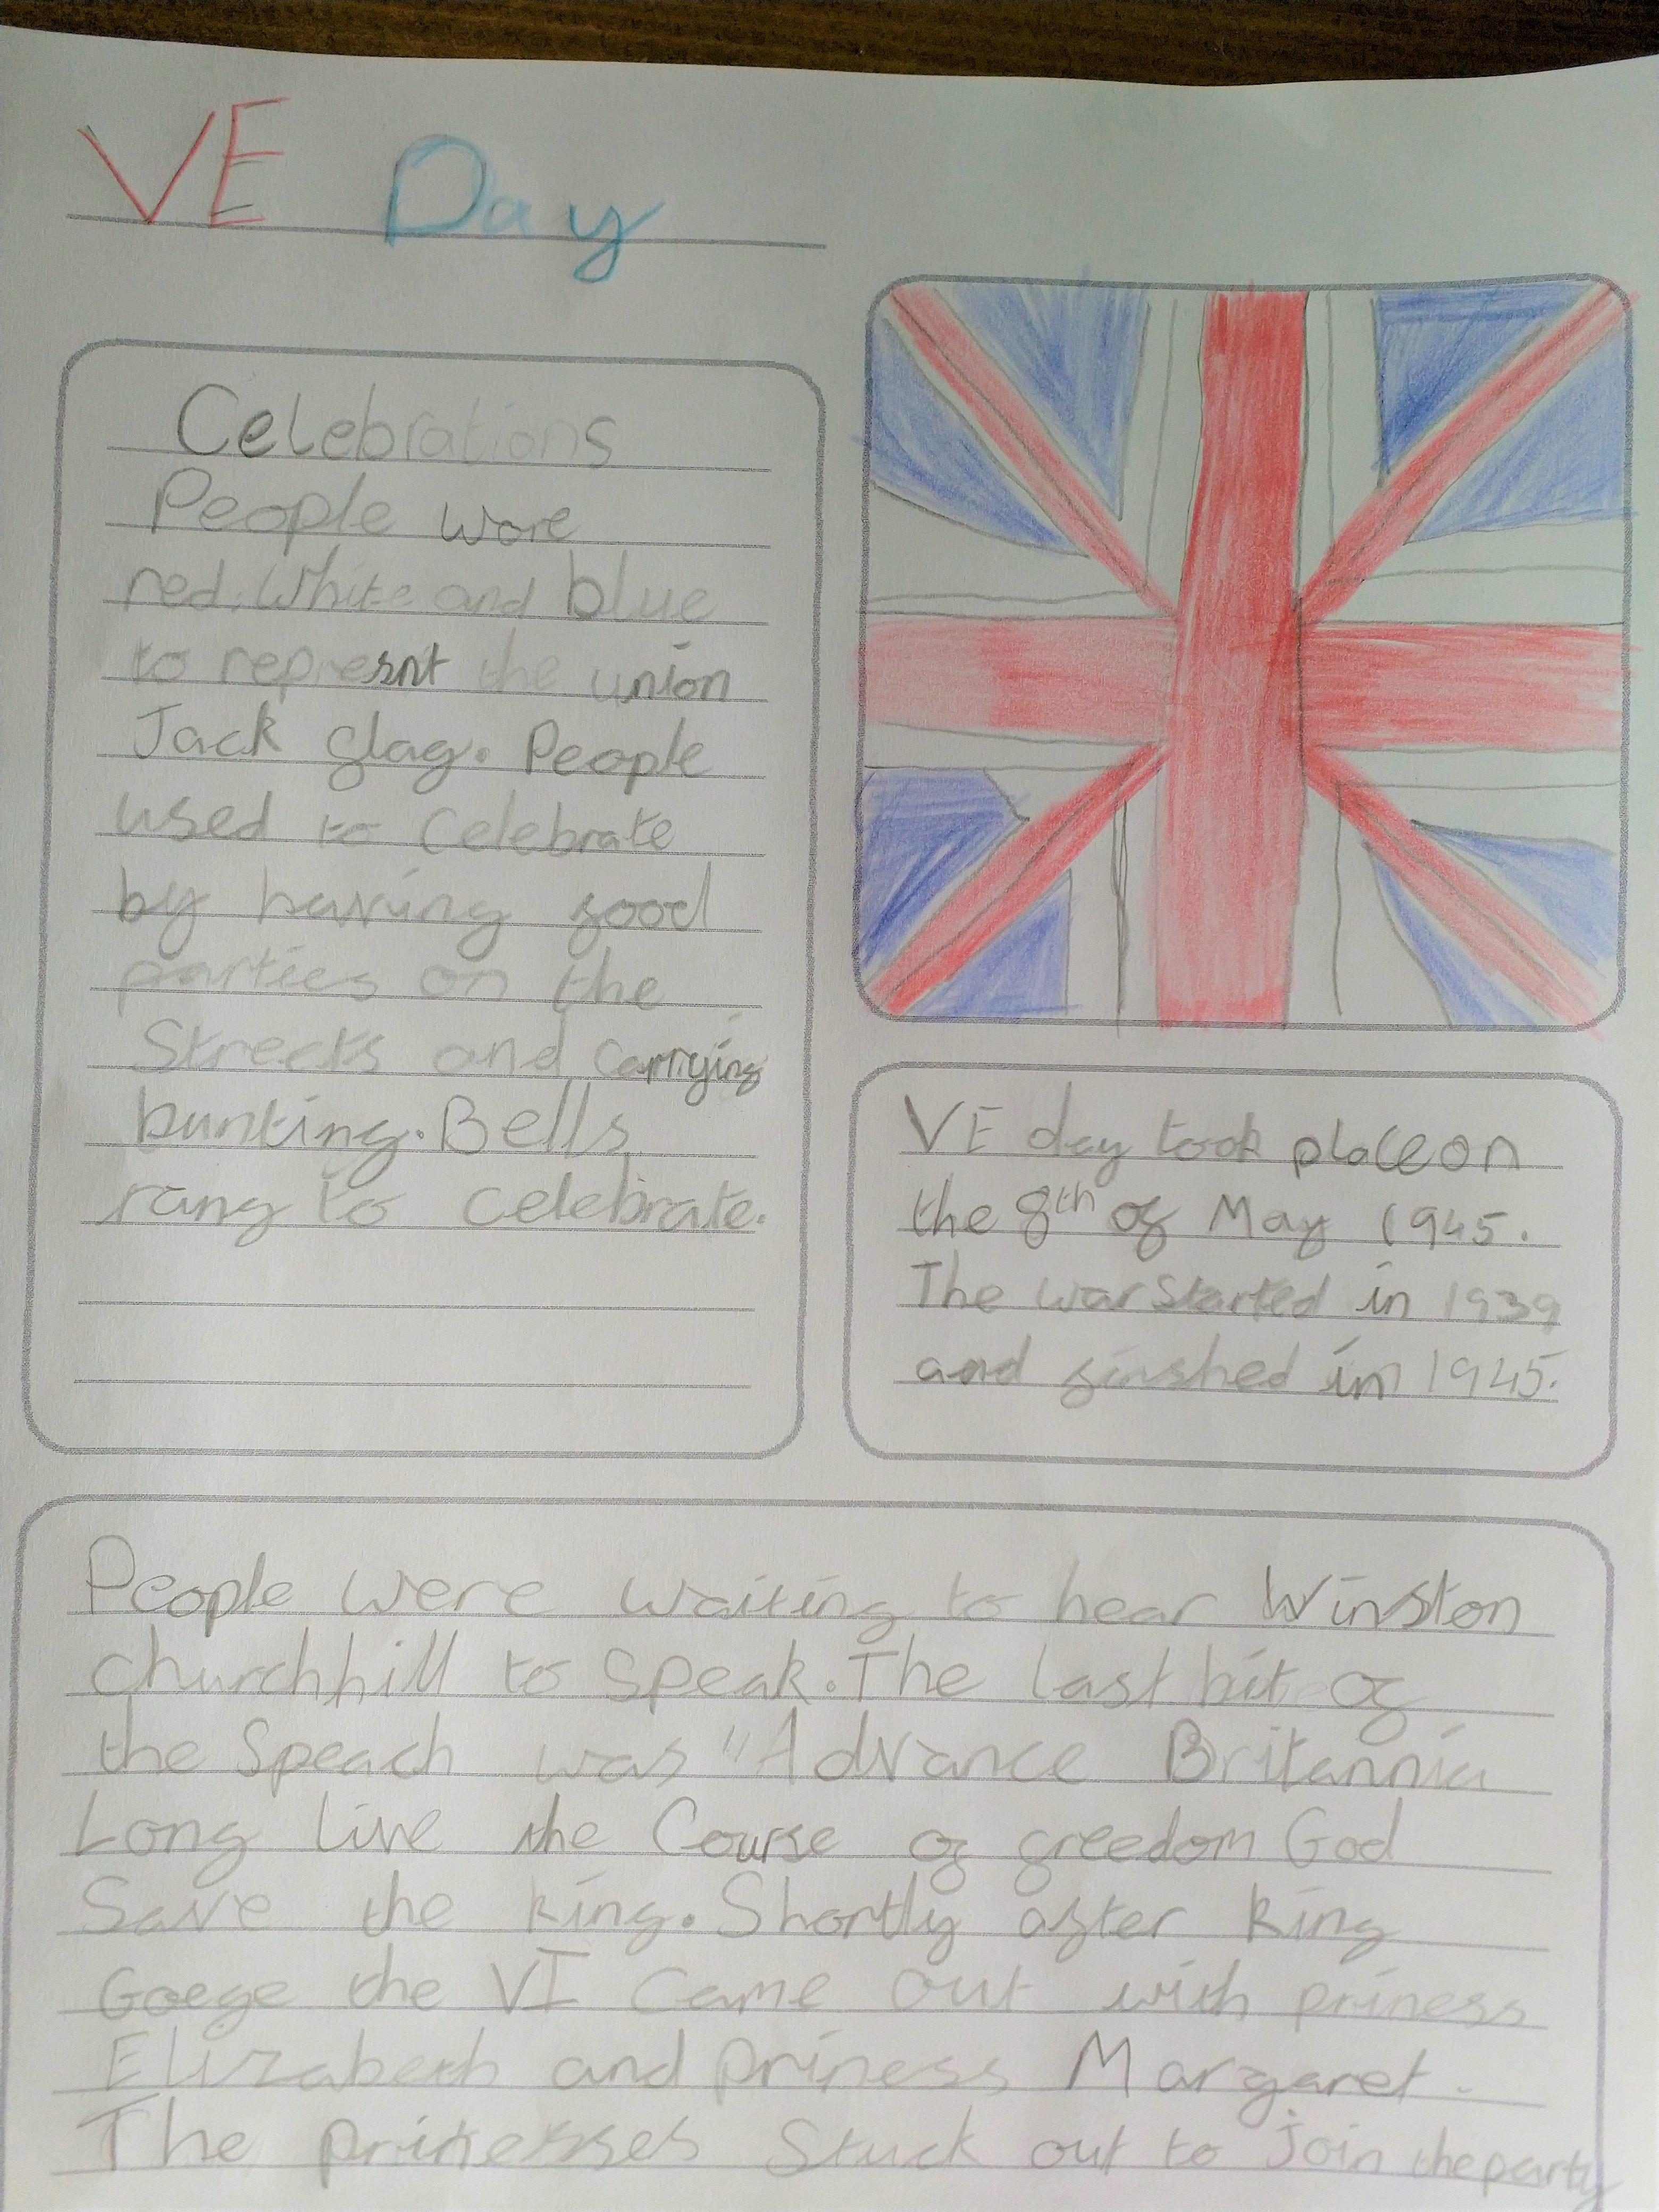 VE Day
Celebrations
People wore
red, White and blue
to represnt the union
Jack flag. People
used to Celebrate
by having food
parties on the
Streets and carrying
bunting. Bells
rang to celebrate.
VE day took place on
the 8th of May 1945.
The war Started in 1939
and finshed in 1945.
People were waiting to hear Winston
churchhill to speak. The last bit of
the Speach was "Advance Britannia
Long live the Course of freedom God
Save the king. Shortly after king
Goege the VI Came out with priness
Elizabeth and priness Margaret.
The prinesses Stuck out to join the party